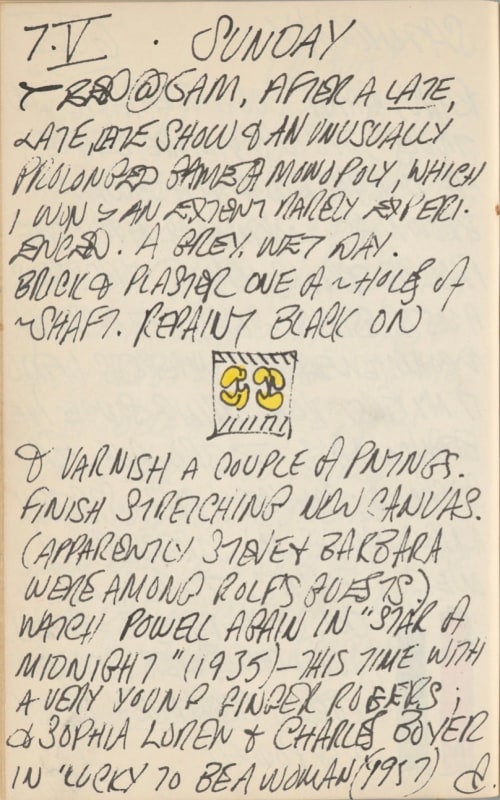 7.V. SUNDAY
BED @ 6AM, AFTER A LATE,
LATE, LATE SHOW & AN UNUSUALLY
PROLONGED GAME OF MONOPOLY, WHICH
I WON TO AN EXTENT RARELY EXPERI-
ENCED. A GREY, WET DAY.
BRICK & PLASTER ONE OF THE HOLES OF
THE SHAFT. REPAINT BLACK ON
& VARNISH A COUPLE OF PNTNGS.
FINISH STRETCHING NEW CANVAS.
(APPARENTLY STEVE & BARBARA
WERE AMONG ROLF'S GUESTS.)
WATCH POWELL AGAIN IN "STAR OF
MIDNIGHT" (1935) – THIS TIME WITH
A VERY YOUNG GINGER ROGERS;
& SOPHIA LOREN & CHARLES BOYER
IN "LUCKY TO BE A WOMAN" (1957)